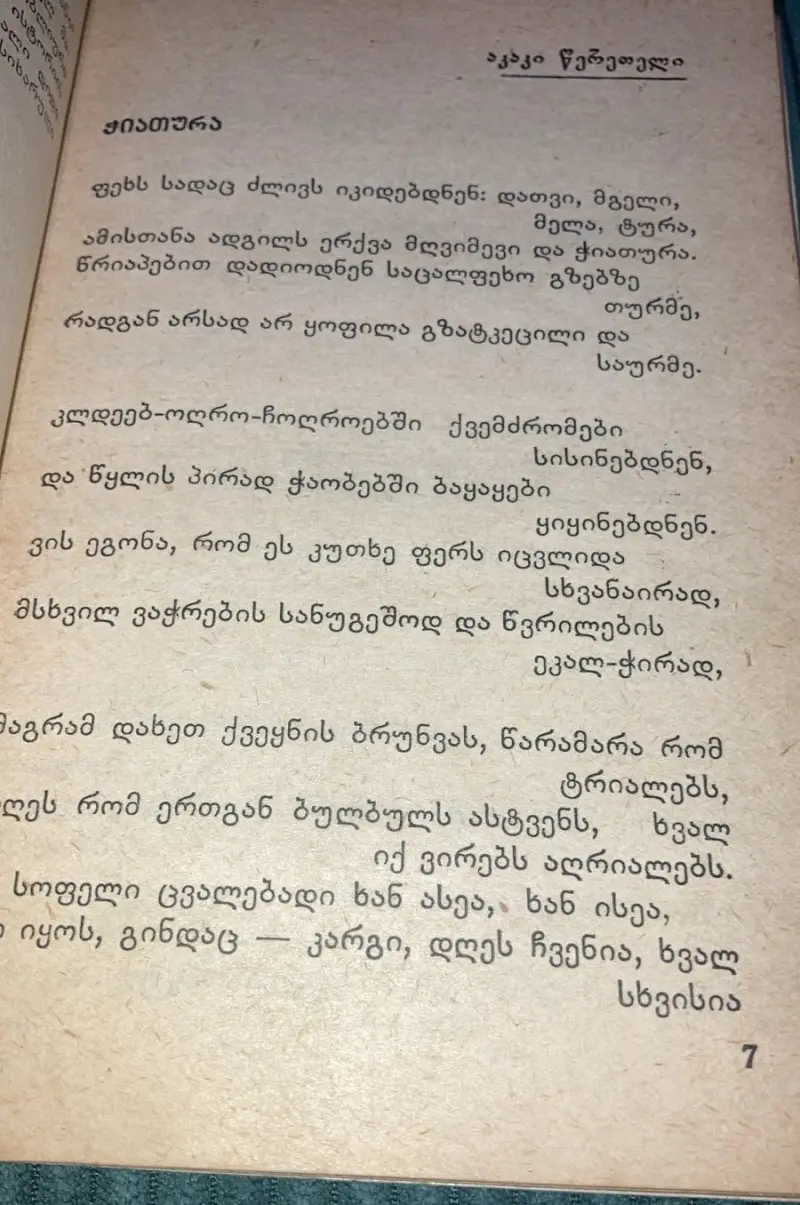 აკაკი წერეთელი
ჭიათურა
ფეხს სადაც ძლივს იკიდებდნენ: დათვი, მგელი,
მელა, ტურა,
ამისთანა ადგილს ერქვა მღვიმევი და ჭიათურა.
წრიაპებით დადიოდნენ საცალფეხო გზებზე
თურმე,
რადგან არსად არ ყოფილა გზატკეცილი და
საურმე.
კლდეებ-ოღრო-ჩოღროებში ქვემძრომები
სისინებდნენ,
და წყლის პირად ჭაობებში ბაყაყები
ყიყინებდნენ.
ვის ეგონა, რომ ეს კუთხე ფერს იცვლიდა
სხვანაირად,
მსხვილ ვაჭრების სანუგეშოდ და წვრილების
ეკალ-ჭირად,
მაგრამ დახეთ ქვეყნის ბრუნვას, წარამარა რომ
ტრიალებს,
რომ ერთგან ბულბულს ასტვენს, ხვალ
იქ ვირებს აღრიალებს.
სოფელი ცვალებადი ხან ასეა, ხან ისეა,
იყოს, გინდაც — კარგი, დღეს ჩვენია, ხვალ
სხვისია
7